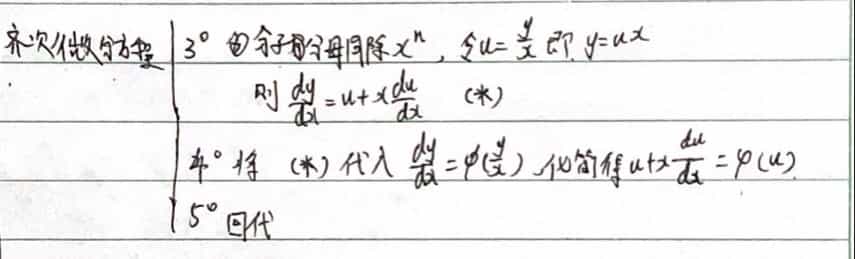 齐次微分方程
3° 分子分母同除 xⁿ, 令u=y/x 即 y=ux
则 dy/dx=u+x du/dx (*)
4° 将 (*) 代入 dy/dx=φ(y/x), 化简得 u+x du/dx=φ(u)
5° 回代